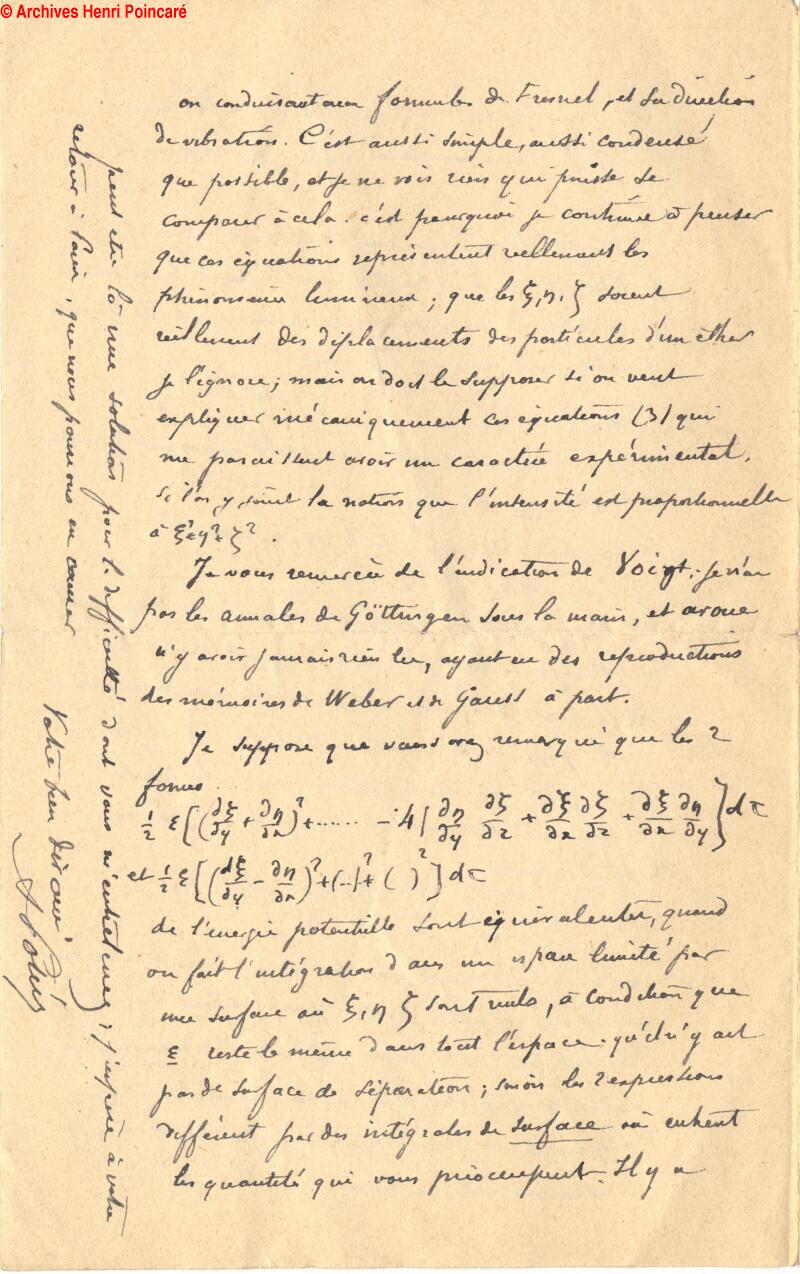 © Archives Henri Poincaré
on conduisant aux formules de Fresnel, et sa direction
de vibration. C'est aussi simple, aussi condensé
que possible, et je ne vois rien qui puisse se
comparer à cela. c'est pourquoi je continue à penser
que ces équations représentent réellement les
phénomènes lumineux; que les ξ, η, ζ soient
réellement des déplacements des particules d'un éther
je l'ignore; mais on doit le supposer si on veut
expliquer mécaniquement ces équations (3) qui
me paraissent avoir un caractère expérimental,
si l'on y joint la notion que l'intensité est proportionnelle
à ξ²+η²+ζ².
Je vous remercie de l'indication de Voigt; je n'ai
pas les annales de Göttingen sous la main, et avoue
n'y avoir jamais rien lu, ayant eu des reproductions
des mémoires de Weber et de Gauss à part.
Je suppose que vous avez remarqué que les 2
formes
½ ε[(∂ξ/∂y + ∂η/∂x)² + ...... − 4(∂η/∂y ∂ζ/∂z + ∂ξ/∂x ∂ζ/∂z + ∂ξ/∂x ∂η/∂y)] dτ
et ½ ε[(dξ/∂y − ∂η/∂x)² + (...)² + ( )²] dτ
de l'énergie potentielle sont équivalentes, quand
on fait l'intégration dans un espace limité par
une surface où ξ, η, ζ sont nuls, à condition que
ε reste le même dans tout l'espace. qu'il n'y ait
pas de surface de séparation; sinon les 2 expressions
diffèrent par des intégrales de surface où entrent
les quantités qui vous préoccupent. Il y a
peut être là une solution pour la difficulté dont vous m'entretenez; j'espère à votre
retour à Paris, que nous pourrons en causer
Votre bien dévoué
A Potier